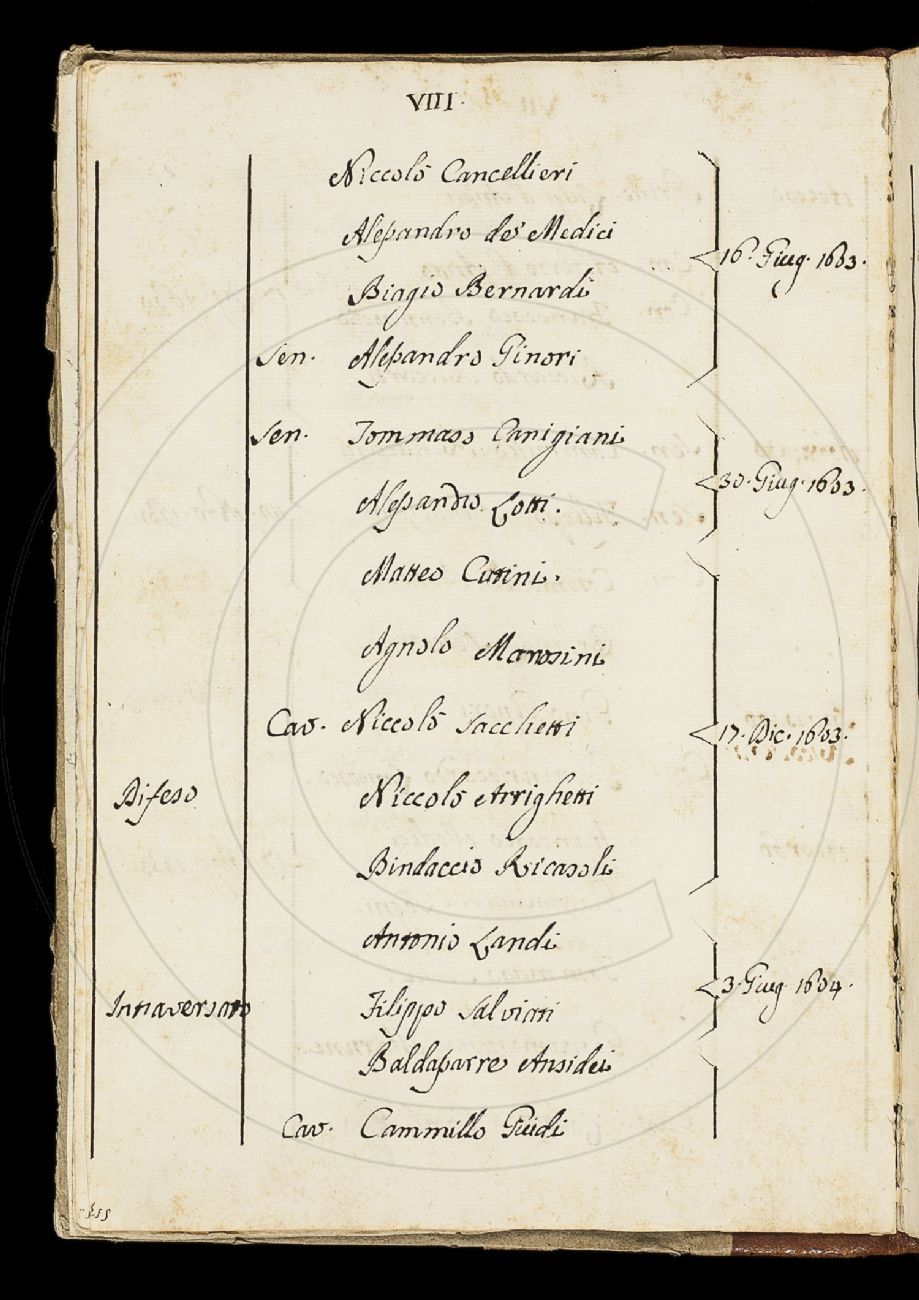 VIII.
Niccolò Cancellieri
Alessandro de' Medici
16. Giug. 1603.
Biagio Bernardi
Sen. Alessandro Ginori
Sen. Tommaso Canigiani
30. Giug. 1603.
Alessandro Lotti.
Matteo Cuttini.
Agnolo Marosini
Cav. Niccolò Sacchetti
17. Dic. 1603.
Difeso Niccolò Arrighetti
Bindaccio Ricasoli
Antonio Landi
3. Giug. 1604.
Intraversato Filippo Salviati
Baldassarre Ansidei
Cav. Cammillo Guidi